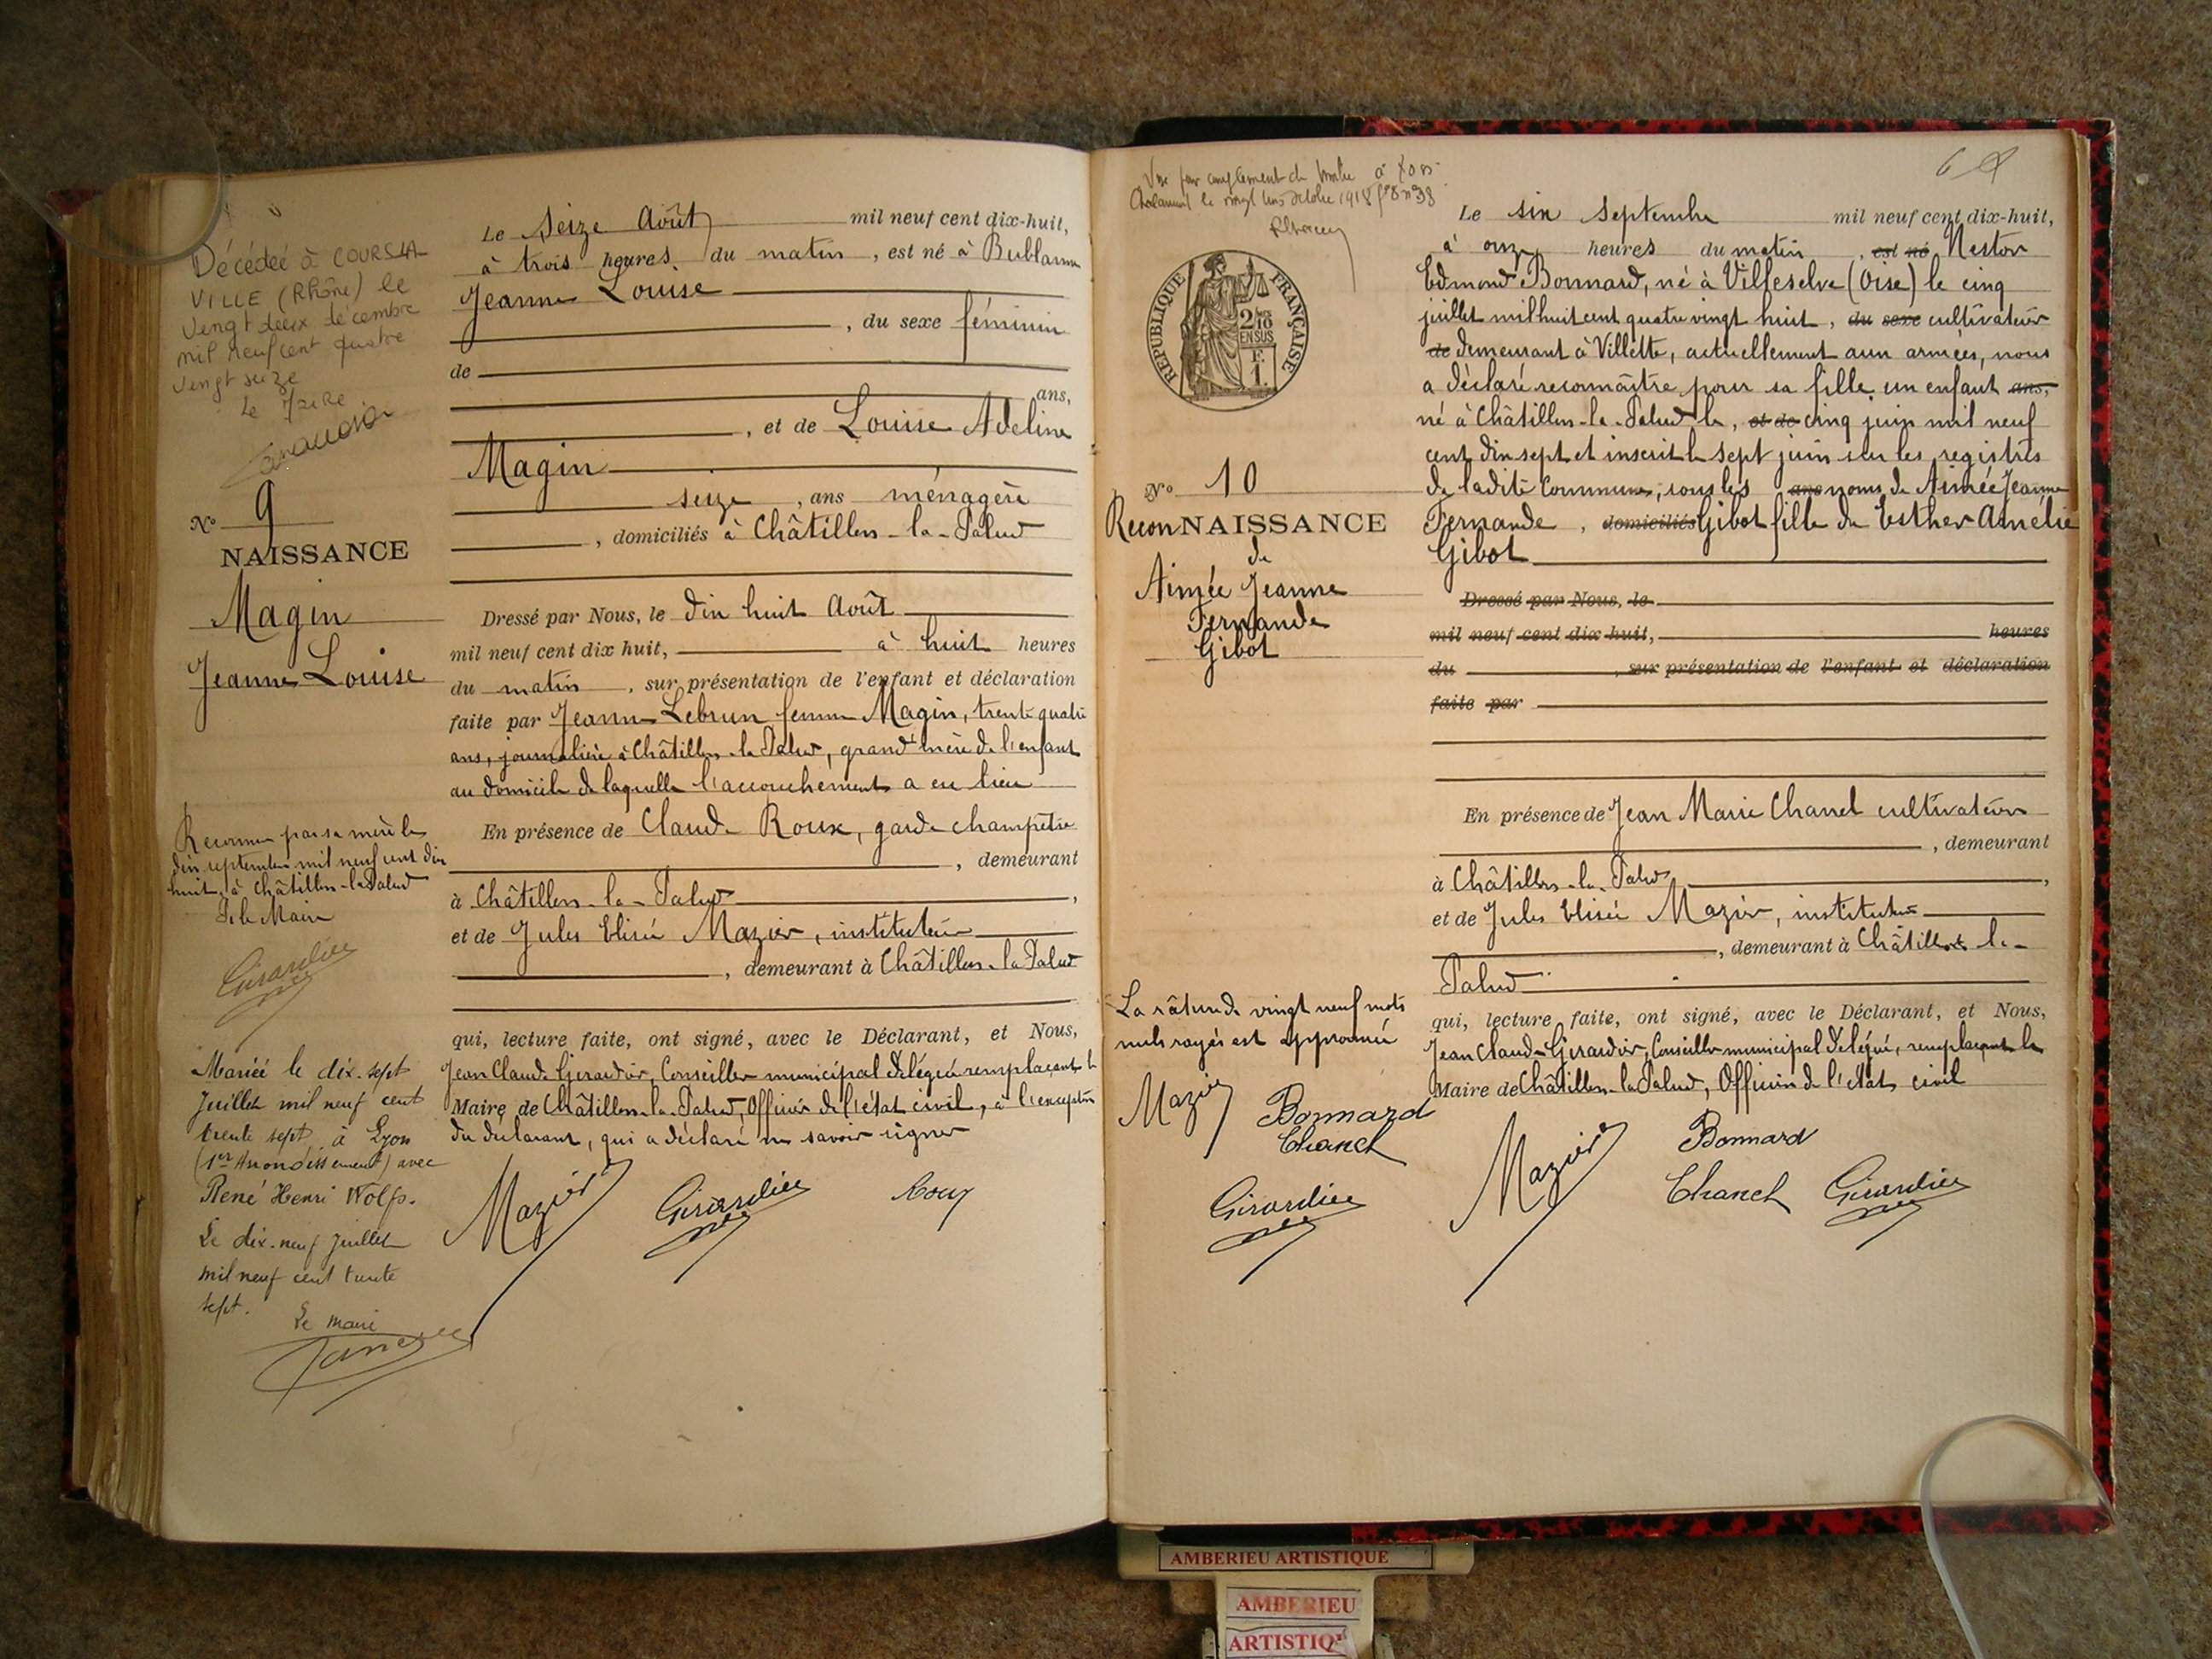 Décédée à COURS LA
VILLE (Rhône) le
Vingt deux décembre
mil neuf cent quatre
Vingt seize
Le Maire
N° 9
NAISSANCE
Magin
Jeanne Louise
Reconnue par sa mère le
dix septembre mil neuf cent dix
huit, à Châtillon-la-Palud
Le Maire
Girardier
Mariée le dix-sept
Juillet mil neuf cent
trente sept à Lyon
(1er Arrondissement) avec
René Henri Wolfs.
Le dix-neuf Juillet
mil neuf cent trente
sept.
Le maire
Le Seize Août mil neuf cent dix-huit,
à trois heures du matin, est né à Bublanne
Jeanne Louise
, du sexe féminin
de
ans,
, et de Louise Adeline
Magin
seize, ans ménagère
, domiciliés à Châtillon-la-Palud
Dressé par Nous, le dix huit Août
mil neuf cent dix huit, à huit heures
du matin, sur présentation de l'enfant et déclaration
faite par Jeanne Lebrun femme Magin, trente quatre
ans, journalière à Châtillon-la-Palud, grand'mère de l'enfant
au domicile de laquelle l'accouchement a eu lieu
En présence de Claude Roux, garde champêtre
, demeurant
à Châtillon-la-Palud,
et de Jules Elisée Mazier, instituteur
, demeurant à Châtillon-la-Palud
qui, lecture faite, ont signé, avec le Déclarant, et Nous,
Jean Claude Girardier, Conseiller municipal délégué remplaçant le
Maire de Châtillon-la-Palud, Officier de l'état civil, à l'exception
du déclarant, qui a déclaré ne savoir signer
Mazier Girardier Roux
Chalamont le vingt octobre 1918
RÉPUBLIQUE FRANÇAISE
2/10
EN SUS
F.
1.
N° 10
ReconNAISSANCE
de
Aimée Jeanne
Fernande
Gibot
La râture de vingt neuf mots
nuls rayés est approuvée
Mazier Bonnard
Chanel
Girardier
Le six Septembre mil neuf cent dix-huit,
à onze heures du matin, est né Nestor
Edmond Bonnard, né à Villeselve (Oise) le cinq
juillet mil huit cent quatre vingt huit, du sexe cultivateur
de demeurant à Villette, actuellement aux armées, nous
a déclaré reconnaître pour sa fille un enfant ans,
né à Châtillon-la-Palud le, et de cinq juin mil neuf
cent dix sept et inscrit le sept juin sur les registres
de ladite Commune, sous les ans noms de Aimée Jeanne
Fernande, domiciliés Gibot fille de Esther Amélie
Gibot
Dressé par Nous, le
mil neuf cent dix huit, heures
du , sur présentation de l'enfant et déclaration
faite par
En présence de Jean Marie Chanel cultivateur
, demeurant
à Châtillon-la-Palud,
et de Jules Elisée Mazier, instituteur
, demeurant à Châtillon-la-
Palud
qui, lecture faite, ont signé, avec le Déclarant, et Nous,
Jean Claude Girardier, Conseiller municipal délégué, remplaçant le
Maire de Châtillon-la-Palud, Officier de l'état civil
Mazier Bonnard
Chanel Girardier
AMBERIEU ARTISTIQUE
AMBERIEU
ARTISTIQ